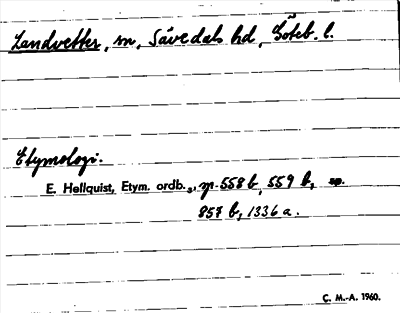 Landvetter, sn, Sävedals hd, Göteb. l.
Etymologi.
E. Hellquist, Etym. ordb., 558 b, 559 b,
857 b, 1336 a.
C. M.-A. 1960.